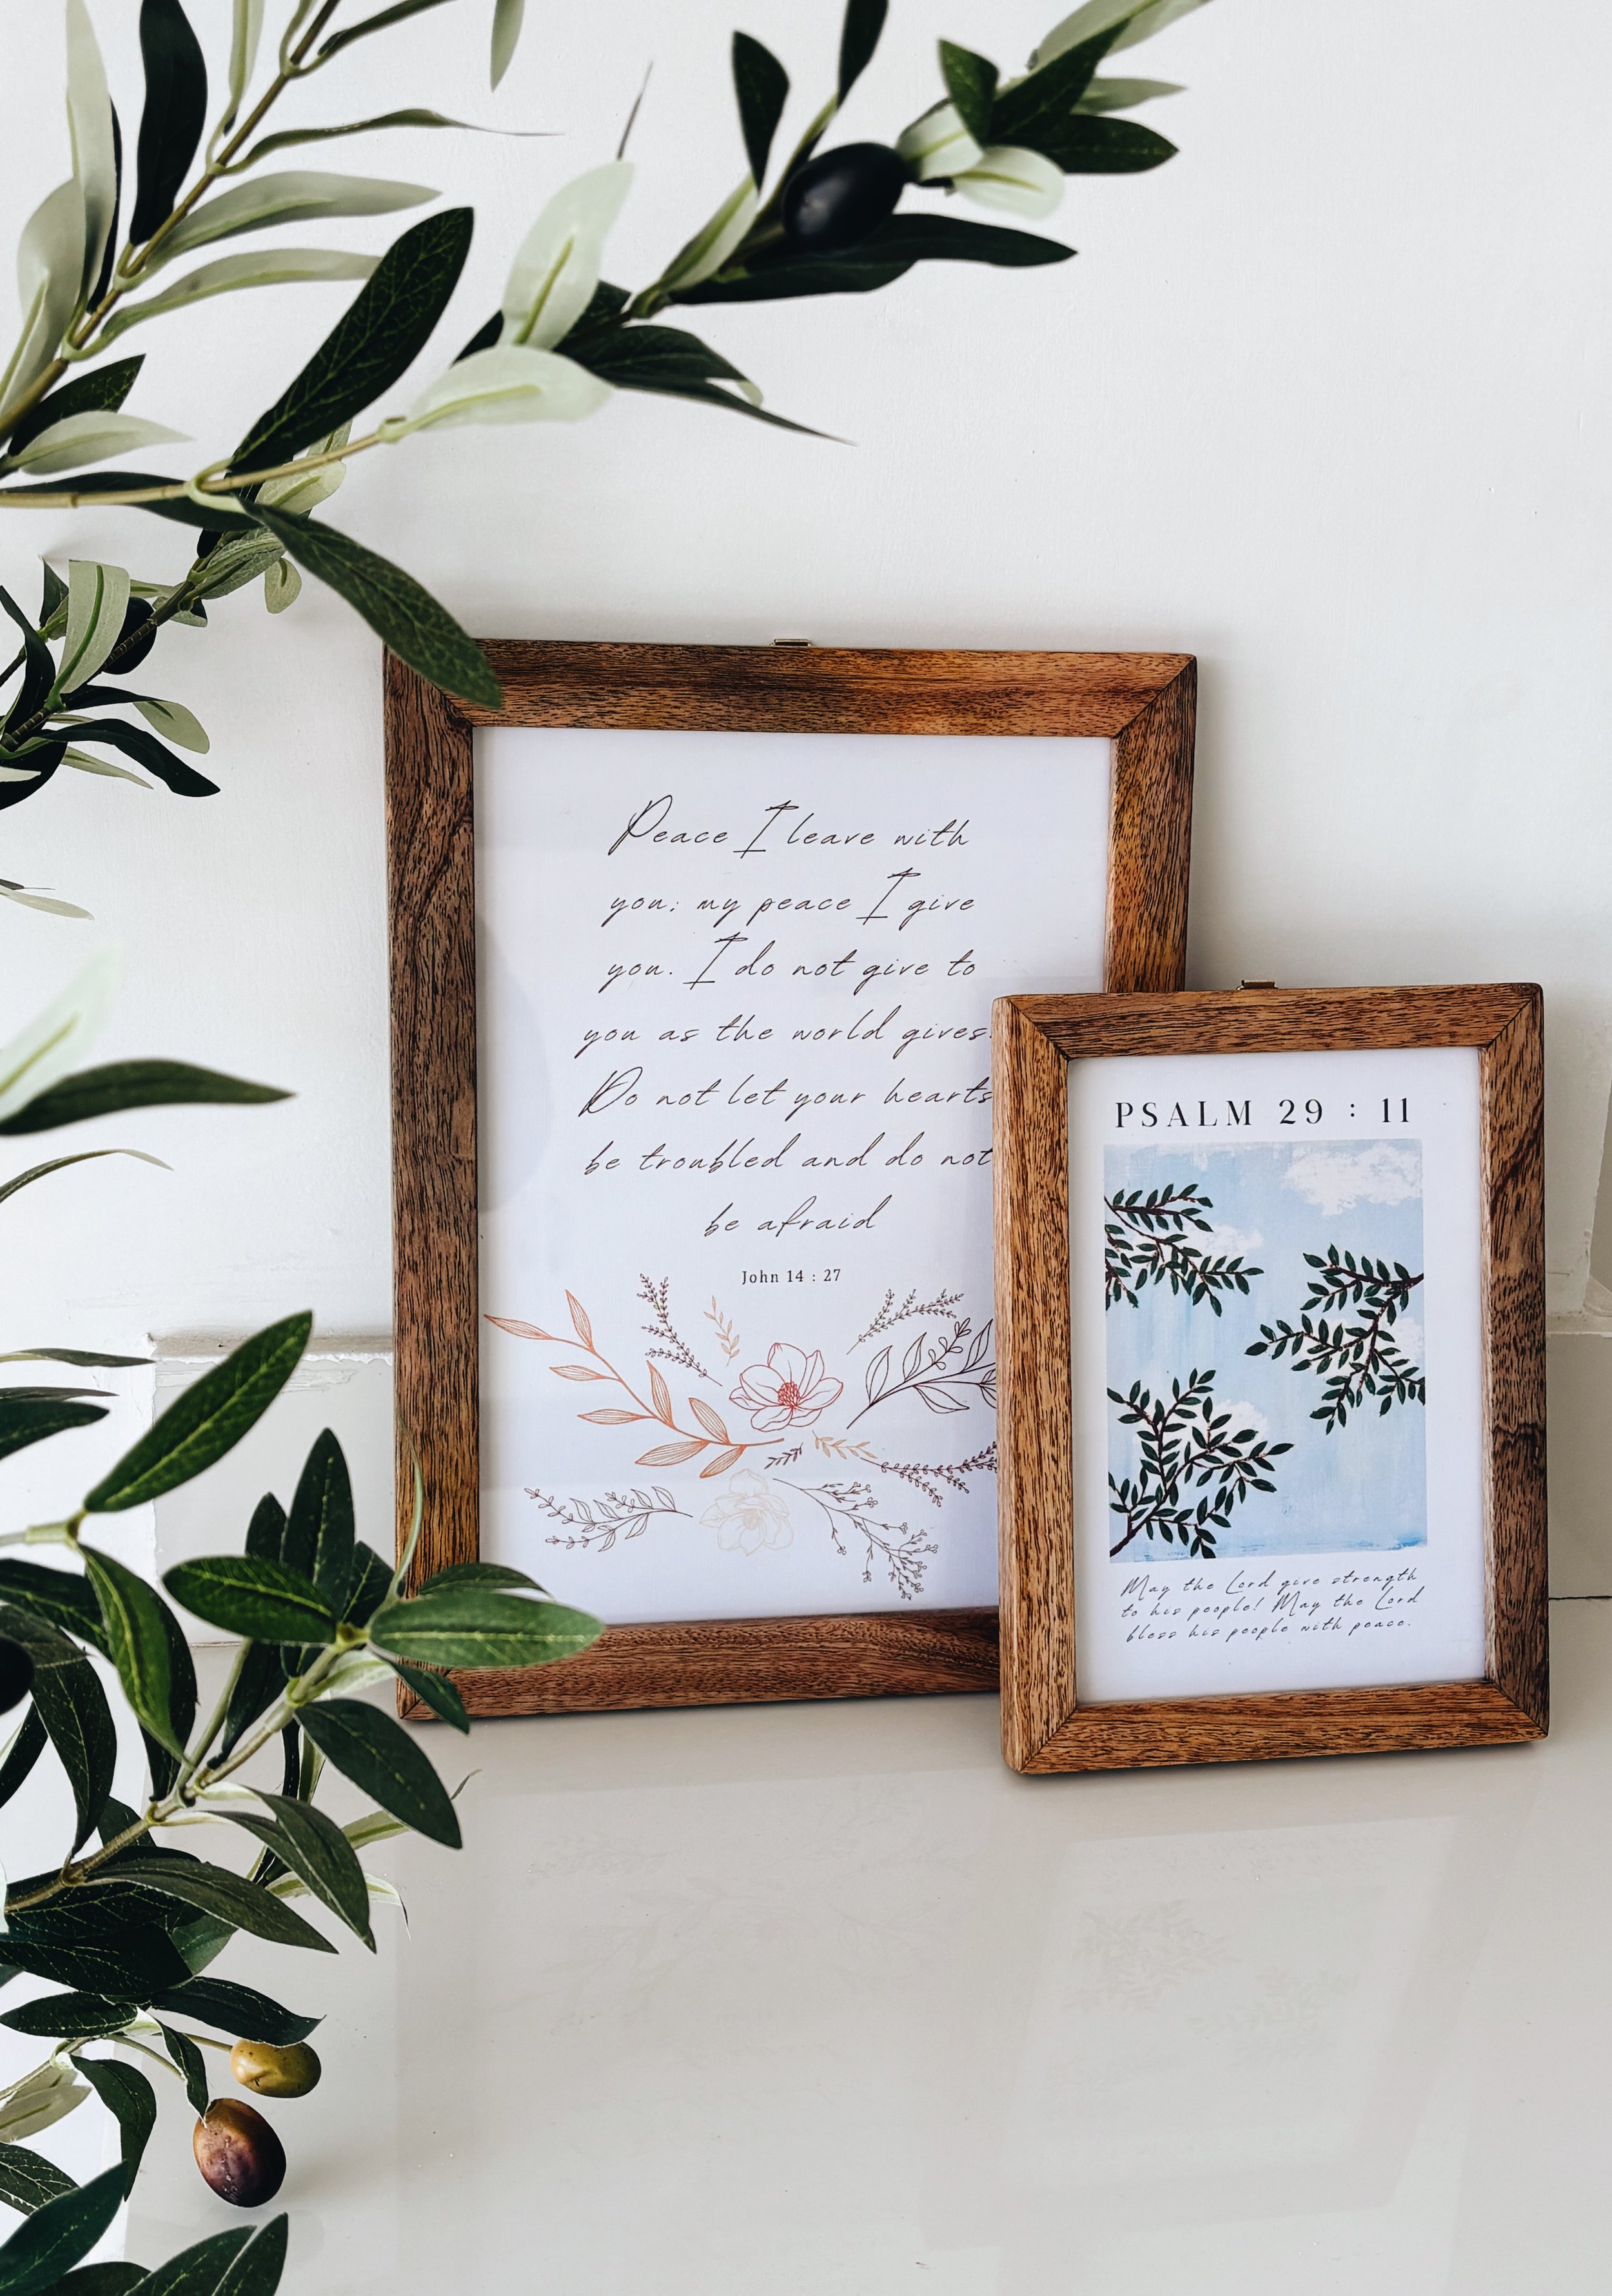 Peace I leave with
you; my peace I give
you. I do not give to
you as the world gives.
Do not let your hearts
be troubled and do not
be afraid
John 14 : 27
PSALM 29 : 11
May the Lord give strength
to his people! May the Lord
bless his people with peace.